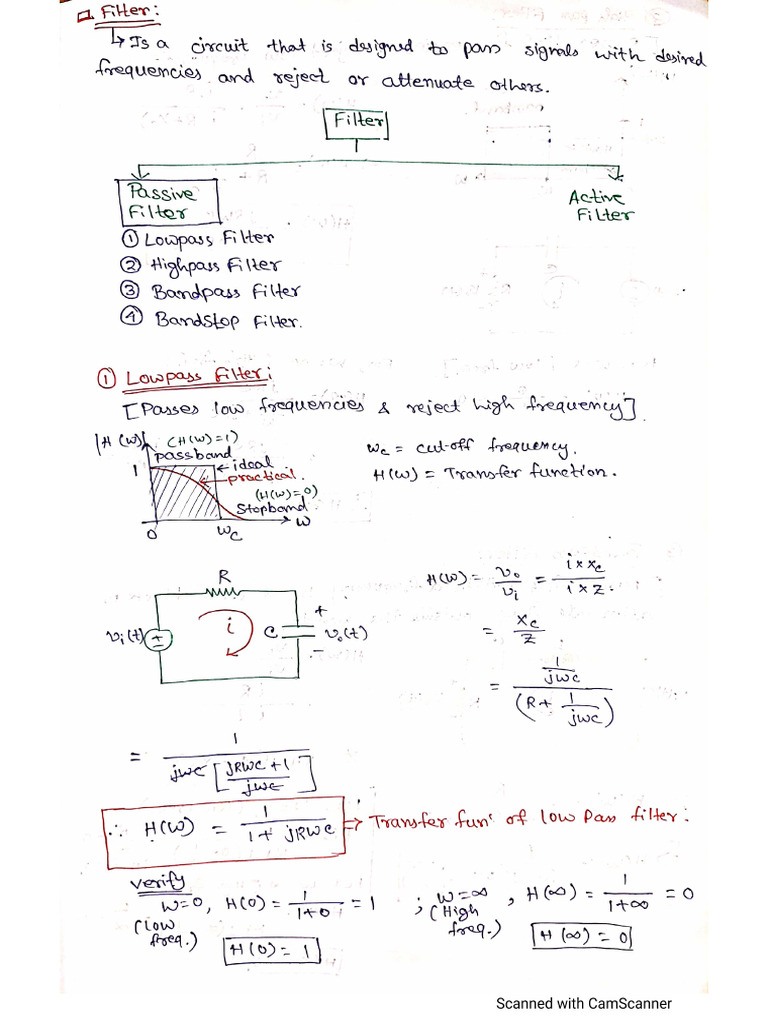 Filter:
↳ Is a circuit that is designed to pass signals with desired
frequencies and reject or attenuate others.
Filter
Passive
Filter
Active
Filter
① Lowpass Filter
② Highpass Filter
③ Bandpass Filter
④ Bandstop Filter.
① Lowpass filter:
[Passes low frequencies & reject high frequency]
|H(w)|
(H(w)=1)
passband
1
←ideal
practical.
(H(w)=0)
Stopband
0
wc
w
wc = cut-off frequency.
H(w) = Transfer function.
R
vi(t)
i
C
+
vo(t)
-
H(w) = vo/vi = (i × xc)/(i × z).
= xc/z
= (1/jwc)/(R + 1/jwc)
= 1/(jwc [(jRwc+1)/jwc])
∴ H(w) = 1/(1+jRwc) ⇒ Transfer funⁿ of low Pass filter:
Verify
w=0, H(0) = 1/(1+0) = 1 ; w=∞, H(∞) = 1/(1+∞) = 0
(Low
freq.)
(High
freq.)
H(0) = 1
H(∞) = 0
Scanned with CamScanner